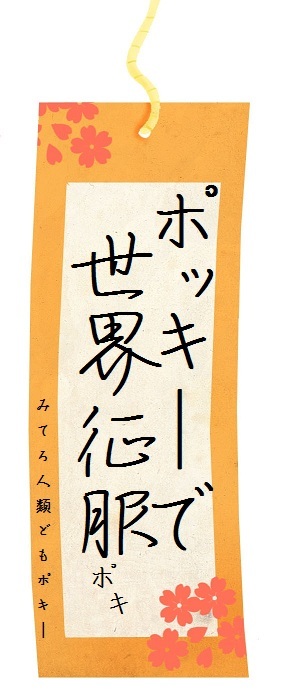 ポッキーで
世界征服
ポキ
みてろ人類どもポキー